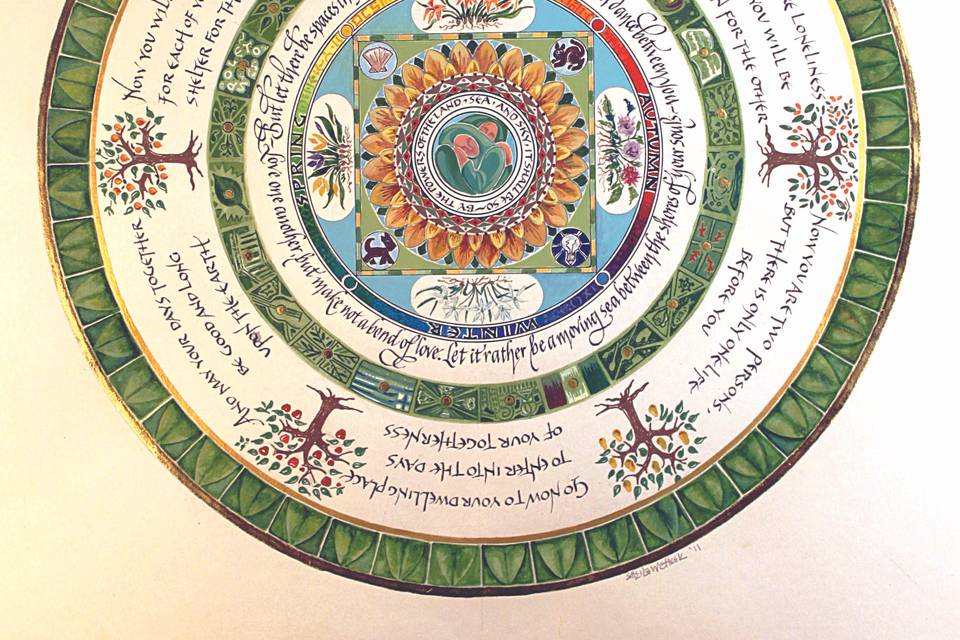 NOW YOU WIL
FOR EACH OF Y
SHELTER FOR TH
E LONELINESS
YOU WILL BE
N FOR THE OTHER
NOW YOU ARE TWO PERSONS,
BUT THERE IS ONLY ONE LIFE
BEFORE YOU
GO NOW TO YOUR DWELLING PLACE
TO ENTER INTO THE DAYS
OF YOUR TOGETHERNESS
AND MAY YOUR DAYS TOGETHER
BE GOOD AND LONG
UPON THE EARTH
But let there be spaces in
dance between you - Love one another but make not a bond of love. Let it rather be a moving sea between the shores of your souls
SPRING
AUTUMN
WINTER
BY THE POWERS OF THE LAND · SEA · AND SKY · IT SHALL BE SO
'11